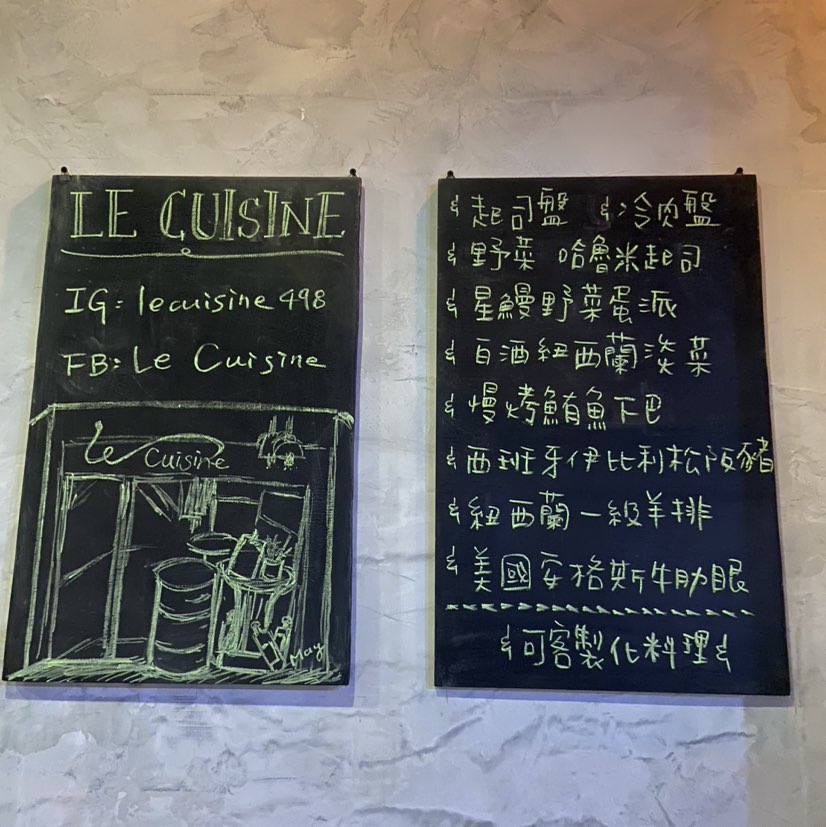 LE CUISINE
IG: lecuisine498
FB: Le Cuisine
Le Cuisine
May
& 起司盤 & 冷肉盤
& 野菜 哈魯米起司
& 星鰻野菜蛋派
& 白酒紐西蘭淡菜
& 慢烤鮪魚下巴
& 西班牙伊比利松阪豬
& 紐西蘭一級羊排
& 美國安格斯牛肋眼
& 可客製化料理 &